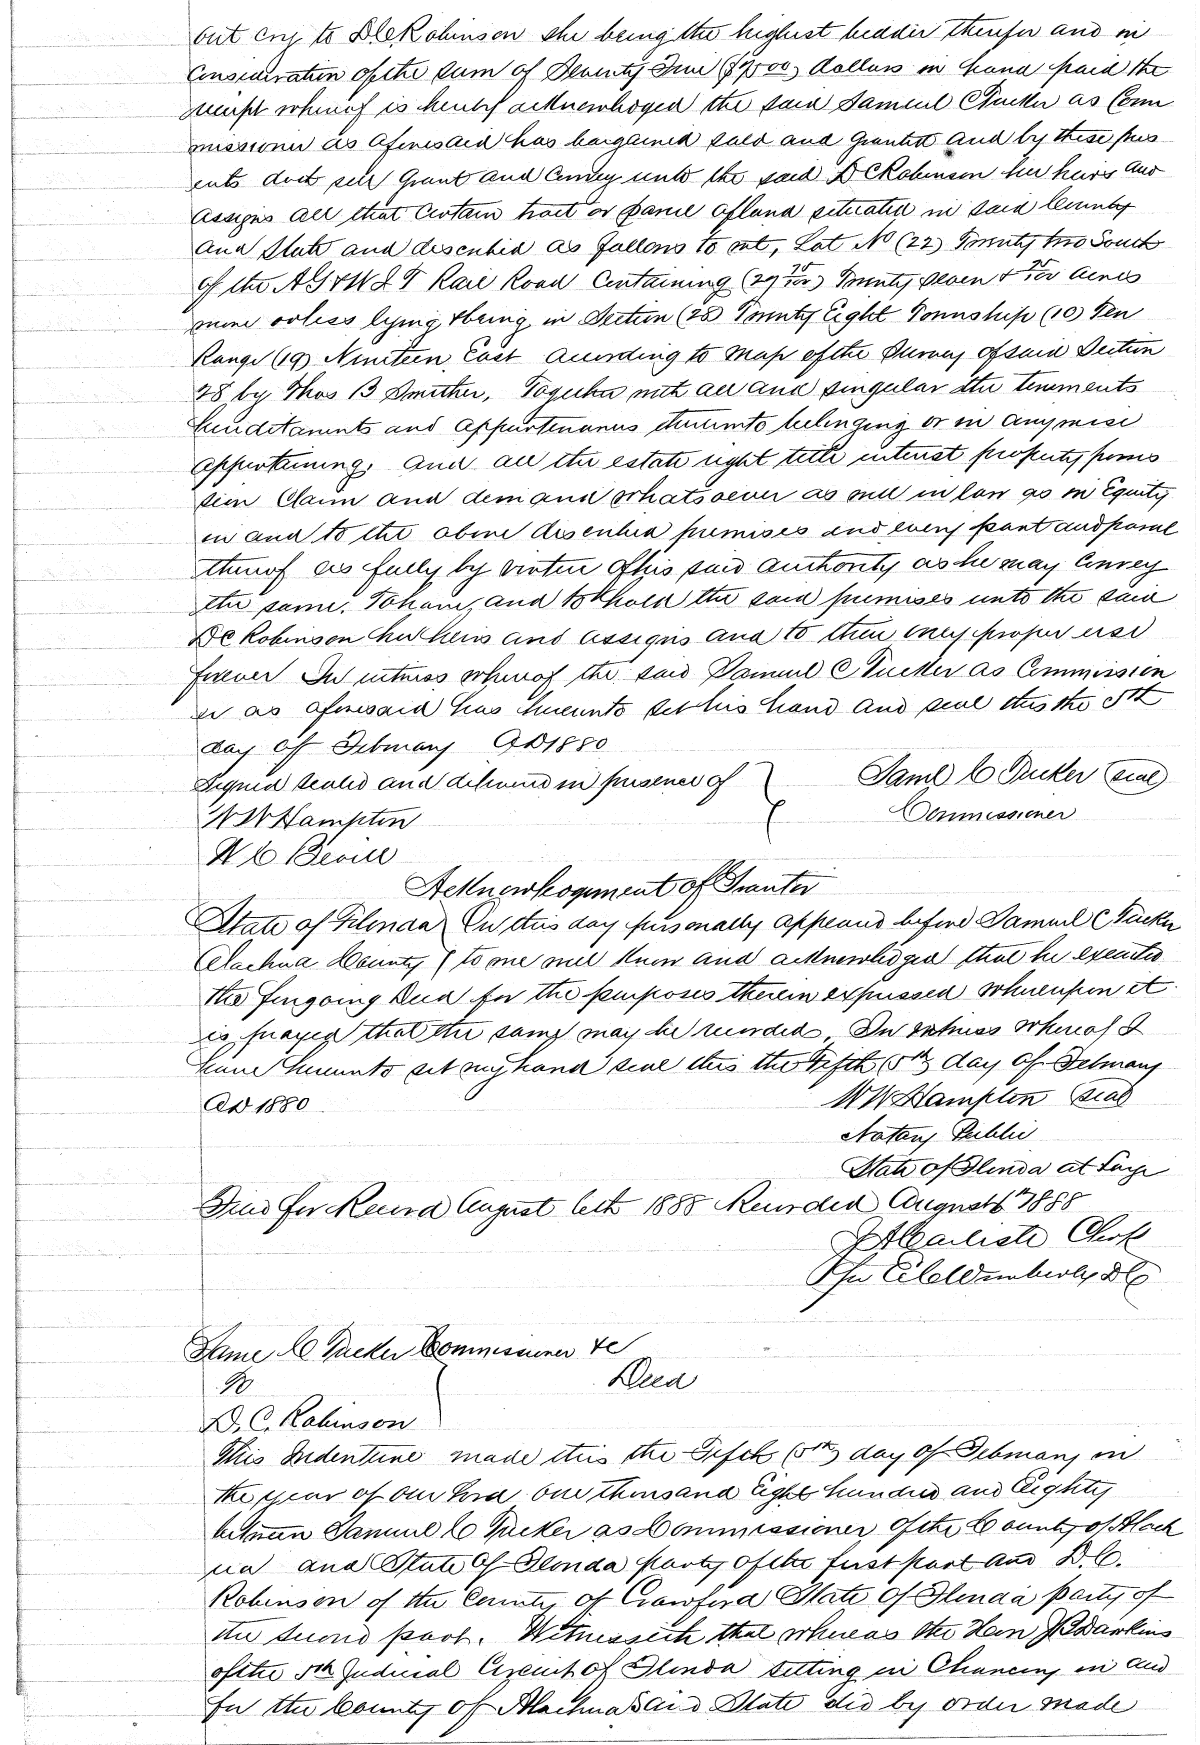 out cry to D C Robinson she being the highest bidder therefor and in
Consideration of the sum of Seventy five ($75 00) dollars in hand paid the
receipt whereof is hereby acknowledged the said Samuel C Tucker as Com
missioner as aforesaid has bargained sold and Granted and by these pres
ents doet sell Grant and Convey unto the said D C Robinson her heirs and
assigns all that Certain tract or parcel of land situated in said County
and State and described as follows to wit, Lot No (22) Twenty two South
of the A G & W I T Rail Road Containing (27 75/100) Twenty seven & 75/100 acres
more or less lying & being in Section (28) Twenty Eight Township (10) Ten
Range (19) Nineteen East according to Map of the Survey of said Section
28 by Thos B Smither, Together with all and singular the tenements
hereditaments and appurtenances thereunto belonging or in anywise
appertaining, and all the estate right title interest property posses
sion Claim and demand whatsoever as well in law as in Equity
in and to the above described premises and every part and parcel
thereof as fully by virtue of his said authority as he may Convey
the same. To have, and to hold the said premises unto the said
D C Robinson her heirs and assigns and to their only proper use
forever In witness whereof the said Samuel C Tucker as Commission
er as aforesaid has hereunto set his hand and seal this the 5th
day of February AD 1880
Signed sealed and delivered in presence of
Saml C Tucker (seal)
W W Hampton
Commissioner
W C Bevill
Acknowledgment of Grantor
State of Florida On this day personally appeared before Samuel C Tucker
Alachua County } to me well know and acknowledged that he executed
the foregoing Deed for the purposes therein expressed whereupon it
is prayed that the same may be recorded, In witness whereof I
have hereunto set my hand seal this the Fifth (5th) day of February
AD 1880
W W Hampton Seal
Notary Public
State of Florida at Large
Filed for Record August 6th 1888 Recorded August 6th 1888
Clerk
Per D C
Same C Tucker Commissioner &c
To
Deed
D. C. Robinson
This Indenture made this the Fifth (5th) day of February in
the year of our Lord one thousand Eight hundred and Eighty
between Samuel C Tucker as Commissioner of the County of Alach
ua and State of Florida party of the first part and D. C.
Robinson of the County of Crawford State of Florida party of
the second part. Witnesseth that whereas the Hon J Dawkins
of the 5th Judicial Circuit of Florida sitting in Chancery in and
for the County of Alachua Said State did by order made